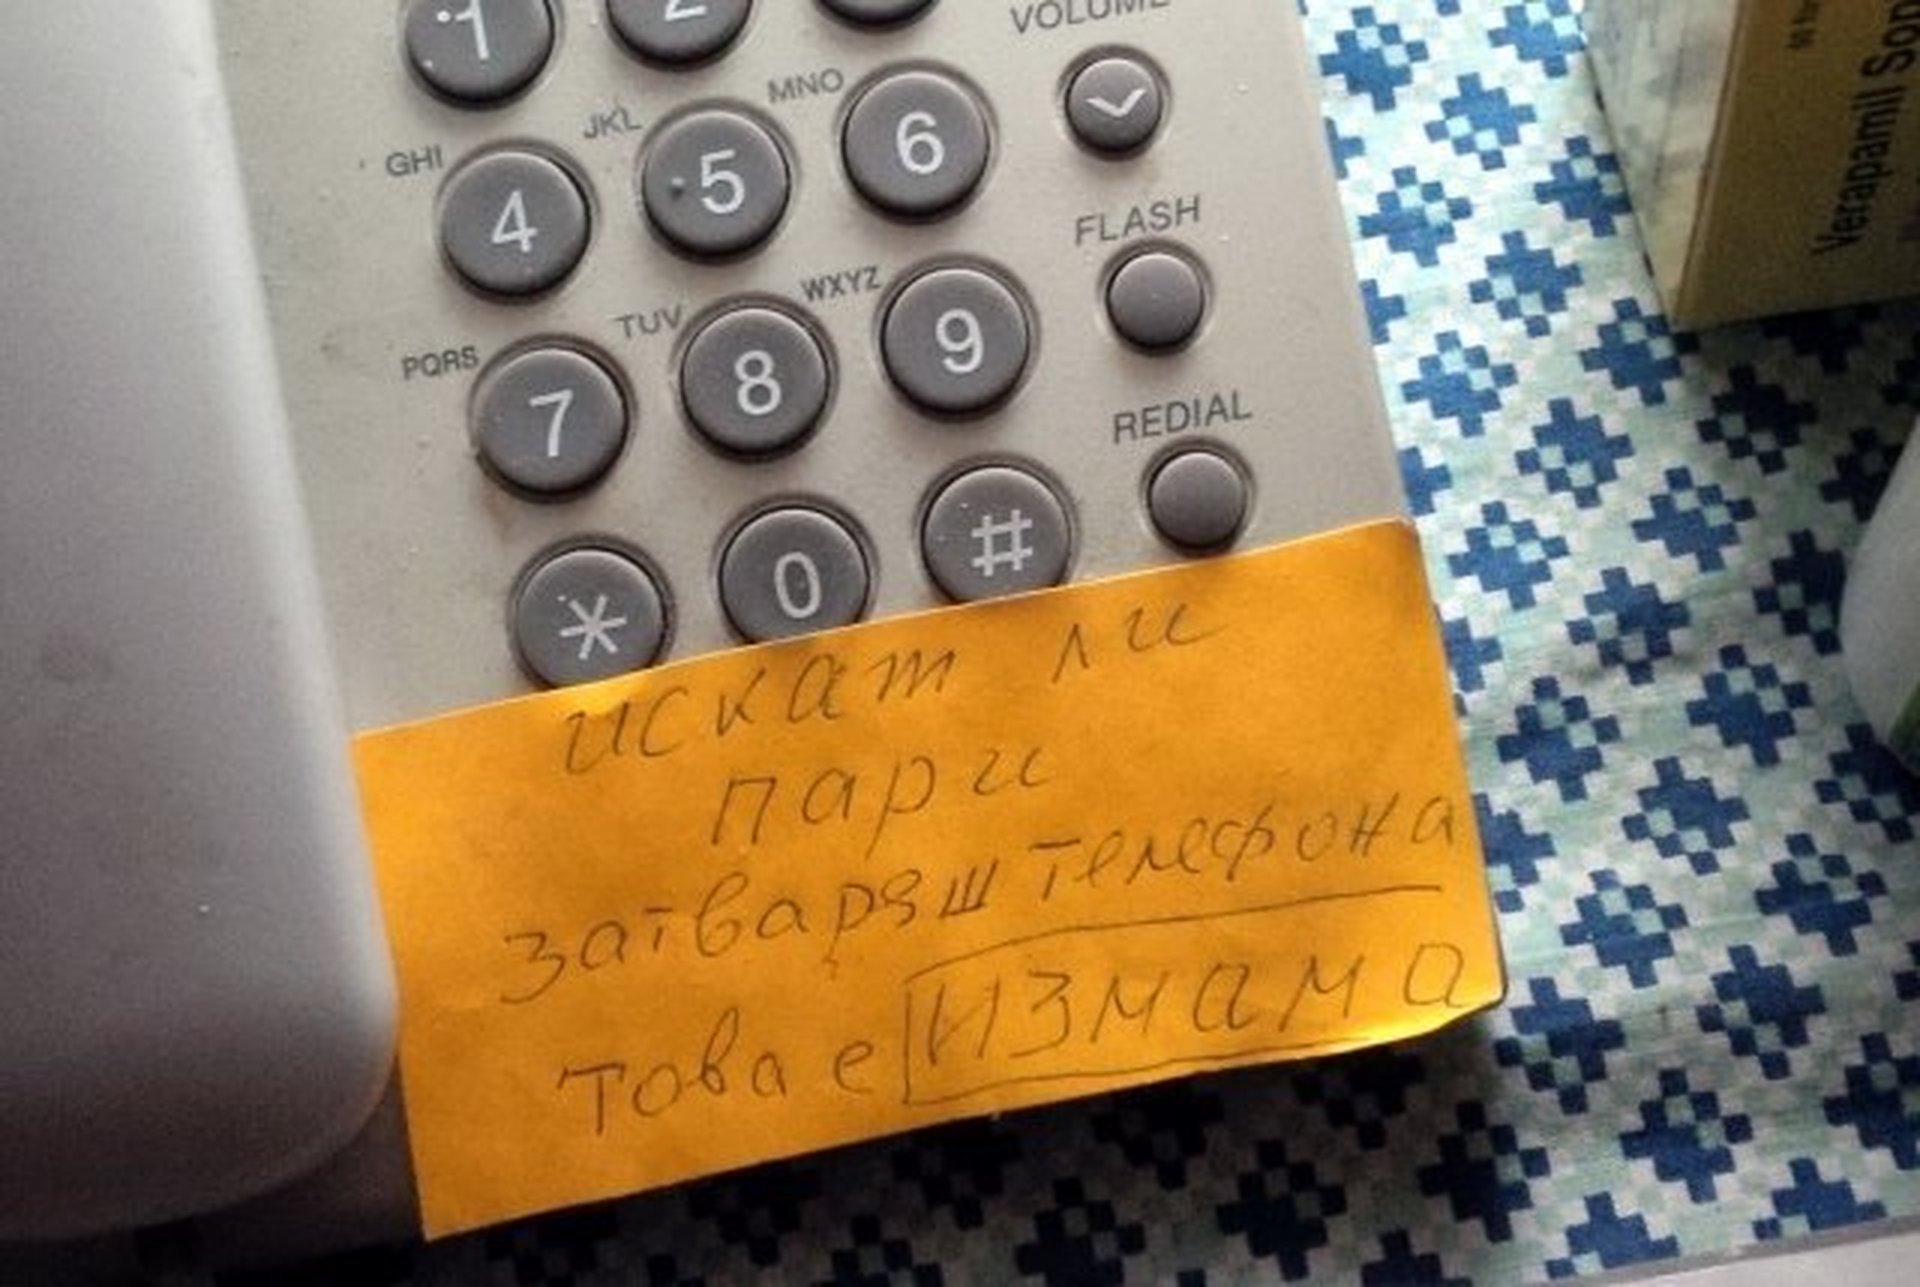 1 2
VOLUME
GHI JKL MNO
4 5 6
FLASH
PQRS TUV WXYZ
7 8 9
REDIAL
* 0 #
искат ли
пари
затваряш телефона
това е ИЗМАМА
Verapamil